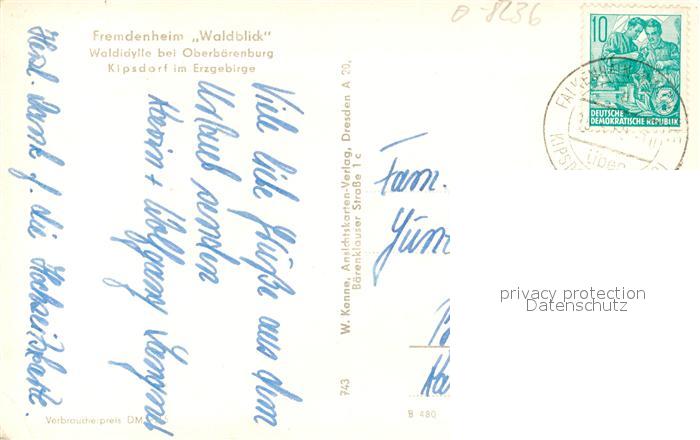 D-8236
Fremdenheim „Waldblick"
Waldidylle bei Oberbärenburg
Kipsdorf im Erzgebirge
Viele liebe Grüße aus dem
Urlaub senden
Karin + Wolfgang
Herzl. Dank f. die Hochzeitskarte.
Verbraucherpreis DM
743 W. Kenne, Ansichtskarten-Verlag, Dresden A 20,
Bärenklauser Straße 1 c
B 480
10
DEUTSCHE
DEMOKRATISCHE REPUBLIK
über
Fam.
privacy protection
Datenschutz